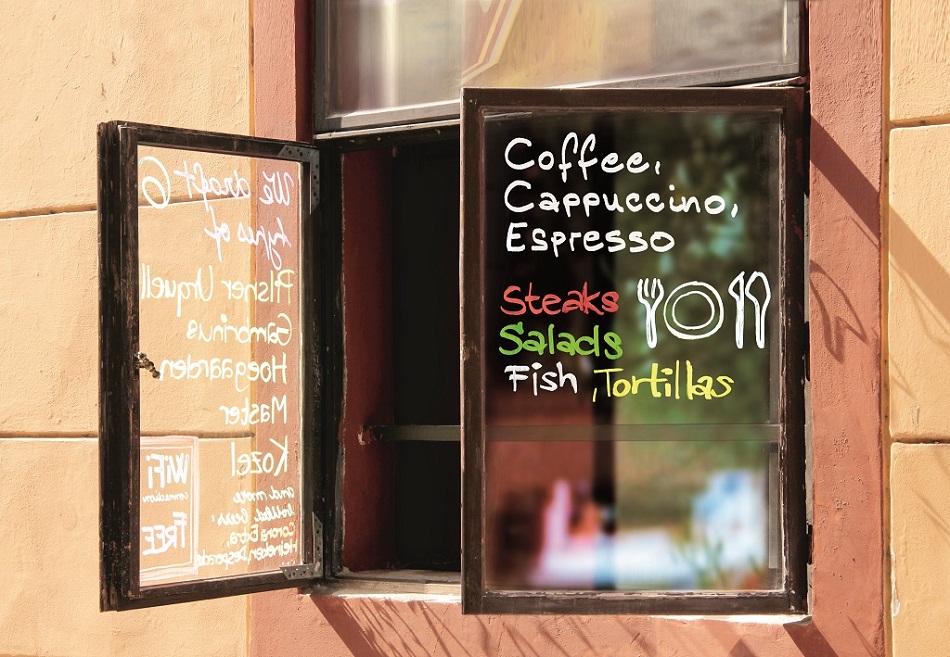 We draft 6
types of
Pilsner Urquell
Gambrinus
Hoegaarden
Master
Kozel
and more
bottled beers:
Corona Extra,
Heineken, Desperados
WiFi
connection
FREE
Coffee,
Cappuccino,
Espresso
Steaks
Salads
Fish , Tortillas